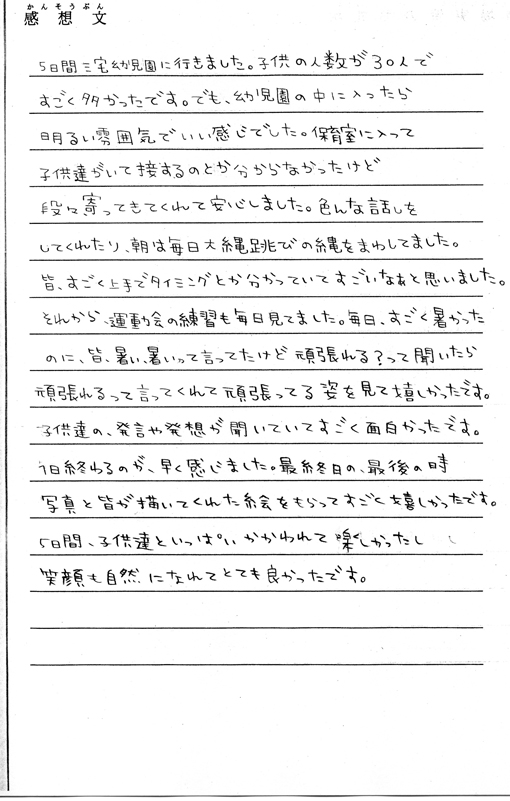 かんそうぶん
感想文
5日間三宅幼児園に行きました。子供の人数が30人で
すごく多かったです。でも、幼児園の中に入ったら
明るい雰囲気でいい感じでした。保育室に入って
子供達がいて接するのとか分からなかったけど
段々寄ってきてくれて安心しました。色んな話しを
してくれたり、朝は毎日大縄跳びの縄をまわしてました。
皆、すごく上手でタイミングとか分かっていてすごいなぁと思いました。
それから、運動会の練習も毎日見てました。毎日、すごく暑かった
のに、皆、暑い、暑いって言ってたけど頑張れる?って聞いたら
頑張れるって言ってくれて頑張ってる姿を見て嬉しかったです。
子供達の、発言や発想が聞いていてすごく面白かったです。
1日終わるのが、早く感じました。最終日の、最後の時
写真と皆が描いてくれた絵をもらってすごく嬉しかったです。
5日間、子供達といっぱいかかわれて楽しかったし
笑顔も自然になれてとても良かったです。